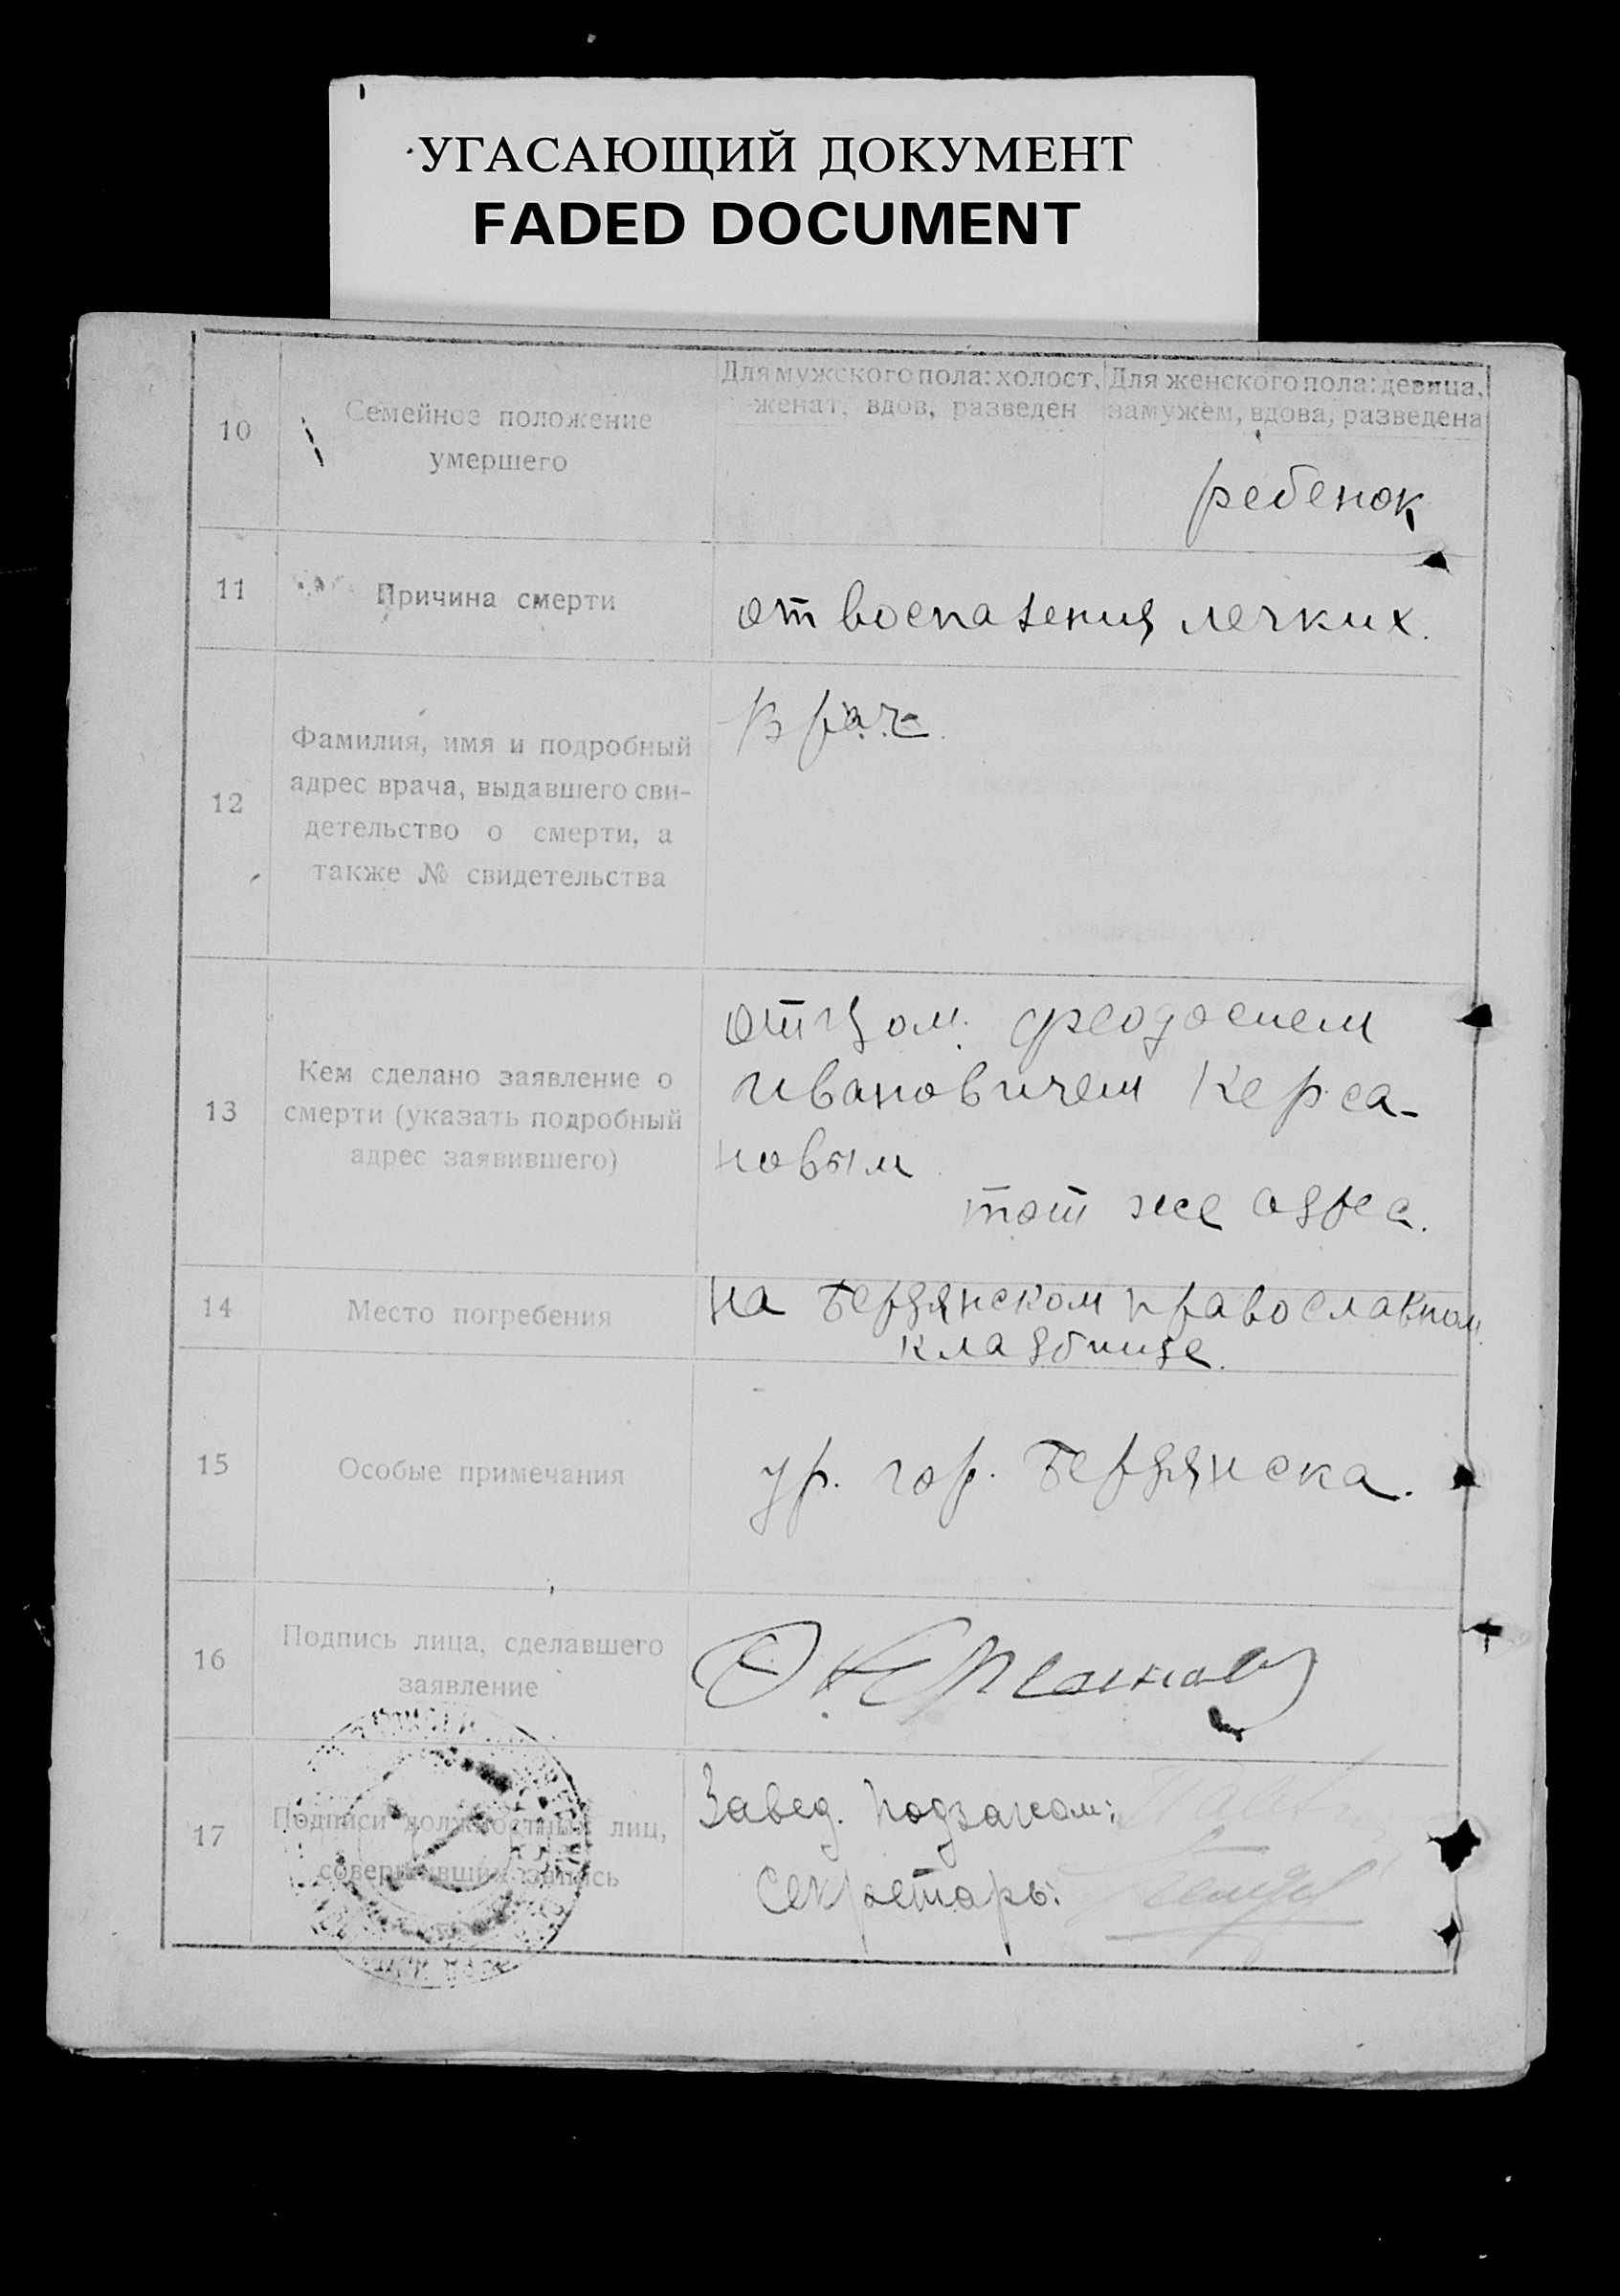 УГАСАЮЩИЙ ДОКУМЕНТ
FADED DOCUMENT
10
Семейное положение
умершего
Для мужского пола: холост,
женат, вдов, разведен
Для женского пола: девица,
замужем, вдова, разведена
ребенок
11
Причина смерти
от воспаления легких.
12
Фамилия, имя и подробный
адрес врача, выдавшего сви-
детельство о смерти, а
также № свидетельства
врач
13
Кем сделано заявление о
смерти (указать подробный
адрес заявившего)
отцом. Феодосием
Ивановичем Керса-
новым
тот же адрес.
14
Место погребения
на Бердянском православном
кладбище.
15
Особые примечания
ур. гор. Бердянска.
16
Подпись лица, сделавшего
заявление
Ф Керсанов
17
Подписи должностных лиц,
совершивших запись
Завед. подзагсом:
Секретарь: